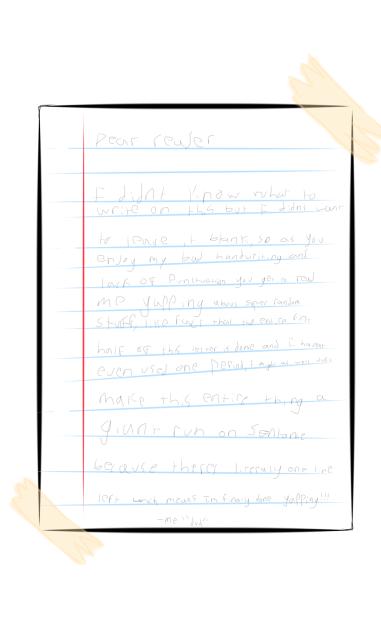 Dear reader
I didnt know what to
write on this but I didnt want
to leave it blank, so as you
enjoy my bad handwriting and
lack of you get to read
me yapping about super random
stuff, like that the entire first
half of this letter is done and I havent
even used one period, I might as well
make this entire thing a
giant run on
because theres literaly one line
left which means im finaly done yapping!!!
-me